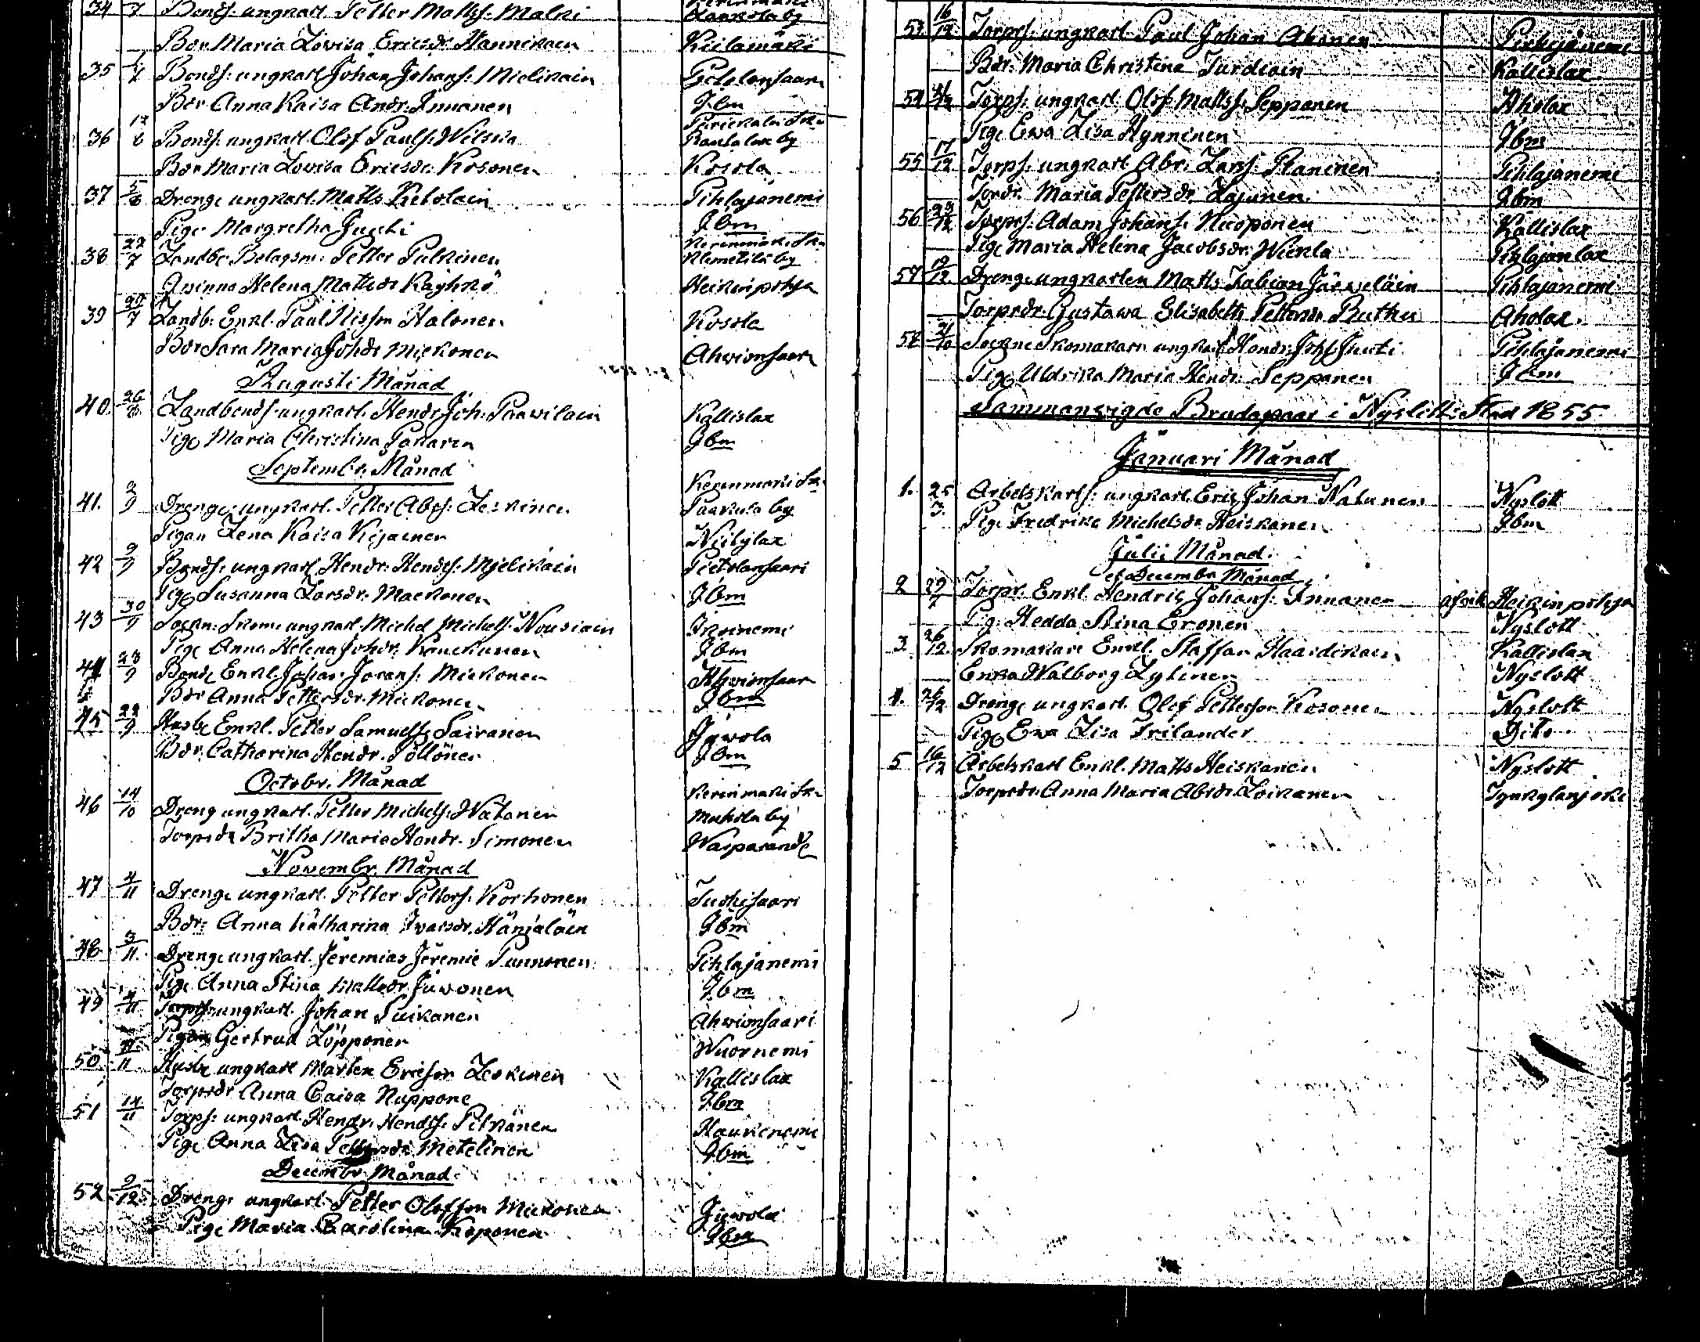 34 /7 Bonds. ungkarl Petter Matts. Malki
Laukola by
Bdr Maria Lovisa Ericsdr. Hannikain Kiilamäki
35 /7 Bonds. ungkarl Johan Johans. Mielikain Pietolansaari
Bdr Anna Kaisa Andr. Innanen Ibm
36 12/8 Bonds. ungkarl Olof Pauls. Wilska Rautalax by
Bdr Maria Lovisa Ericsdr. Kosonen Kosola
37 5/8 Drenge ungkarl Matts Pihlajanemi
Pige Margretha Juuti Ibm
Kerimäki Skn
38 22/7 Landbo Bolagsm. Petter Pulkinen by
Qwinna Helena Mattsdr Käyhkö Heikinpohja
39 20/7 Landb. Enkl. Paul Nilsson Halonen Kosola
Bdr Sara Maria Johdr Mickonen Ahwionsaari
Augusti Månad
40. 26/8 Landbonds. ungkarl. Hendr. Joh. Paawilain Kallislax
Pige Maria Christina Pakarin Ibm
Septembr. Månad
Kerimäki Sn
41. 2/9 Drenge. ungkarl. Petter Abrs. Leskinen Paakula by
Pigan Lena Kaisa Kijainen Niitylax
42 9/9 Bonds. ungkarl Hendr. Hends. Mielikain Pietolansaari
Pige Susanna Larsdr. Mackonen Ibm
43 30/9 Sockn. Skom. ungkarl Michel Michels. Nousiain Ikoinemi
Pige Anna Helena Johdr. Kauhanen Ibm
44 23/9 Bond. Enkl. Johan Johans. Mickonen Ahwionsaari
Bdr Anna Pettersdr. Mickonen Ibm
45 22/9 Husb. Enkl. Petter Samuels. Sairanen Juwola
Bdr. Catharina Hendr. Pöllönen Ibm
Octobr. Månad
Kerimäki Sn
46 14/10 Dreng ungkarl. Petter Michels. Natonen Makola by
Torpsdr Britha Maria Hendr. Simonen Warparanda
Novembr. Månad
47 4/11 Drenge ungkarl. Petter Petters. Korhonen Tuohisaari
Bdr. Anna Katharina Ivarsdr. Hänjäläin Ibm
48 5/11 Drenge ungkarl. Jeremias Jeremie Punnonen Pihlajanemi
Pige Anna Stina Mattsdr Juwonen Ibm
49 4/11 Torps. ungkarl. Johan Suikanen Ahwionsaari
Pigan Gertrud Löpponen Wuornemi
50 /11 Husb. ungkarl Mårten Ericson Leskinen Kallislax
Torpsdr Anna Caisa Nuppone Ibm
51 14/11 Torps. ungkarl. Hendr. Hends. Pitkänen Haukenemi
Pige Anna Lisa Pettersdr Metelinen Ibm
Decembr. Månad
52 9/12 Drenge ungkarl. Petter Olofson Mickonen Juwola
Pige Maria Carolina Koponen Ibm
53 16/12 Torps. ungkarl. Paul Johan Ahonen Pihlajanemi
Bdr. Maria Christina Turdiain Kallislax
54 /12 Torps. ungkarl. Olof Matts. Sepponen Aholax
Pige Ewa Lisa Hynninen Ibm
55 17/12 Torps. ungkarl Abr. Lars. Staninen Pihlajanemi
Tordr. Maria Pettersdr. Lajunen Ibm
56 23/12 Torps. Adam Johans. Nuoponen Kallislax
Pige Maria Helena Jacobsdr. Wiekla Pihlajanlax
57 19/12 Dreng ungkarlen Matts Fabian Järweläin Pihlajanemi
Torpsdr. Gustawa Elisabeth Pettersdr. Buther Aholax.
58 21/10 Sockne Skomakarn ungkarl Hendr. Johs Juuti Pihlajanemi
Pige Uldrika Maria Hendr. Sepponen Ibm
Sammanwigde Brudepaar i Nyslott Stad 1855
Januari Månad
1. 25/3 Arbetskarls. ungkarl. Eric Johan Natunen Nyslott
Pig. Fredrika Michelsdr Heiskanen Ibm
Julii Månad.
et Decembr Månad
2 29/7 Torpr. Enkl. Hendric Johans. Innanen Heikinpohja
Pig. Hedda Stina Cronen Nyslott
3. 26/12 Skomakare Enkl. Staffan Haardikain Kallislax
Enka Walborg Lytinen Nyslott
4. 26/12 Dreng ungkarl. Olof Petterson Kosonen Nyslott
Pige Ewa Lisa Frilander Dito
5 16/12 Arbetskarl Enkl. Matts Heiskanen Nyslott
Torpsdr. Anna Maria Absdr Loikanen